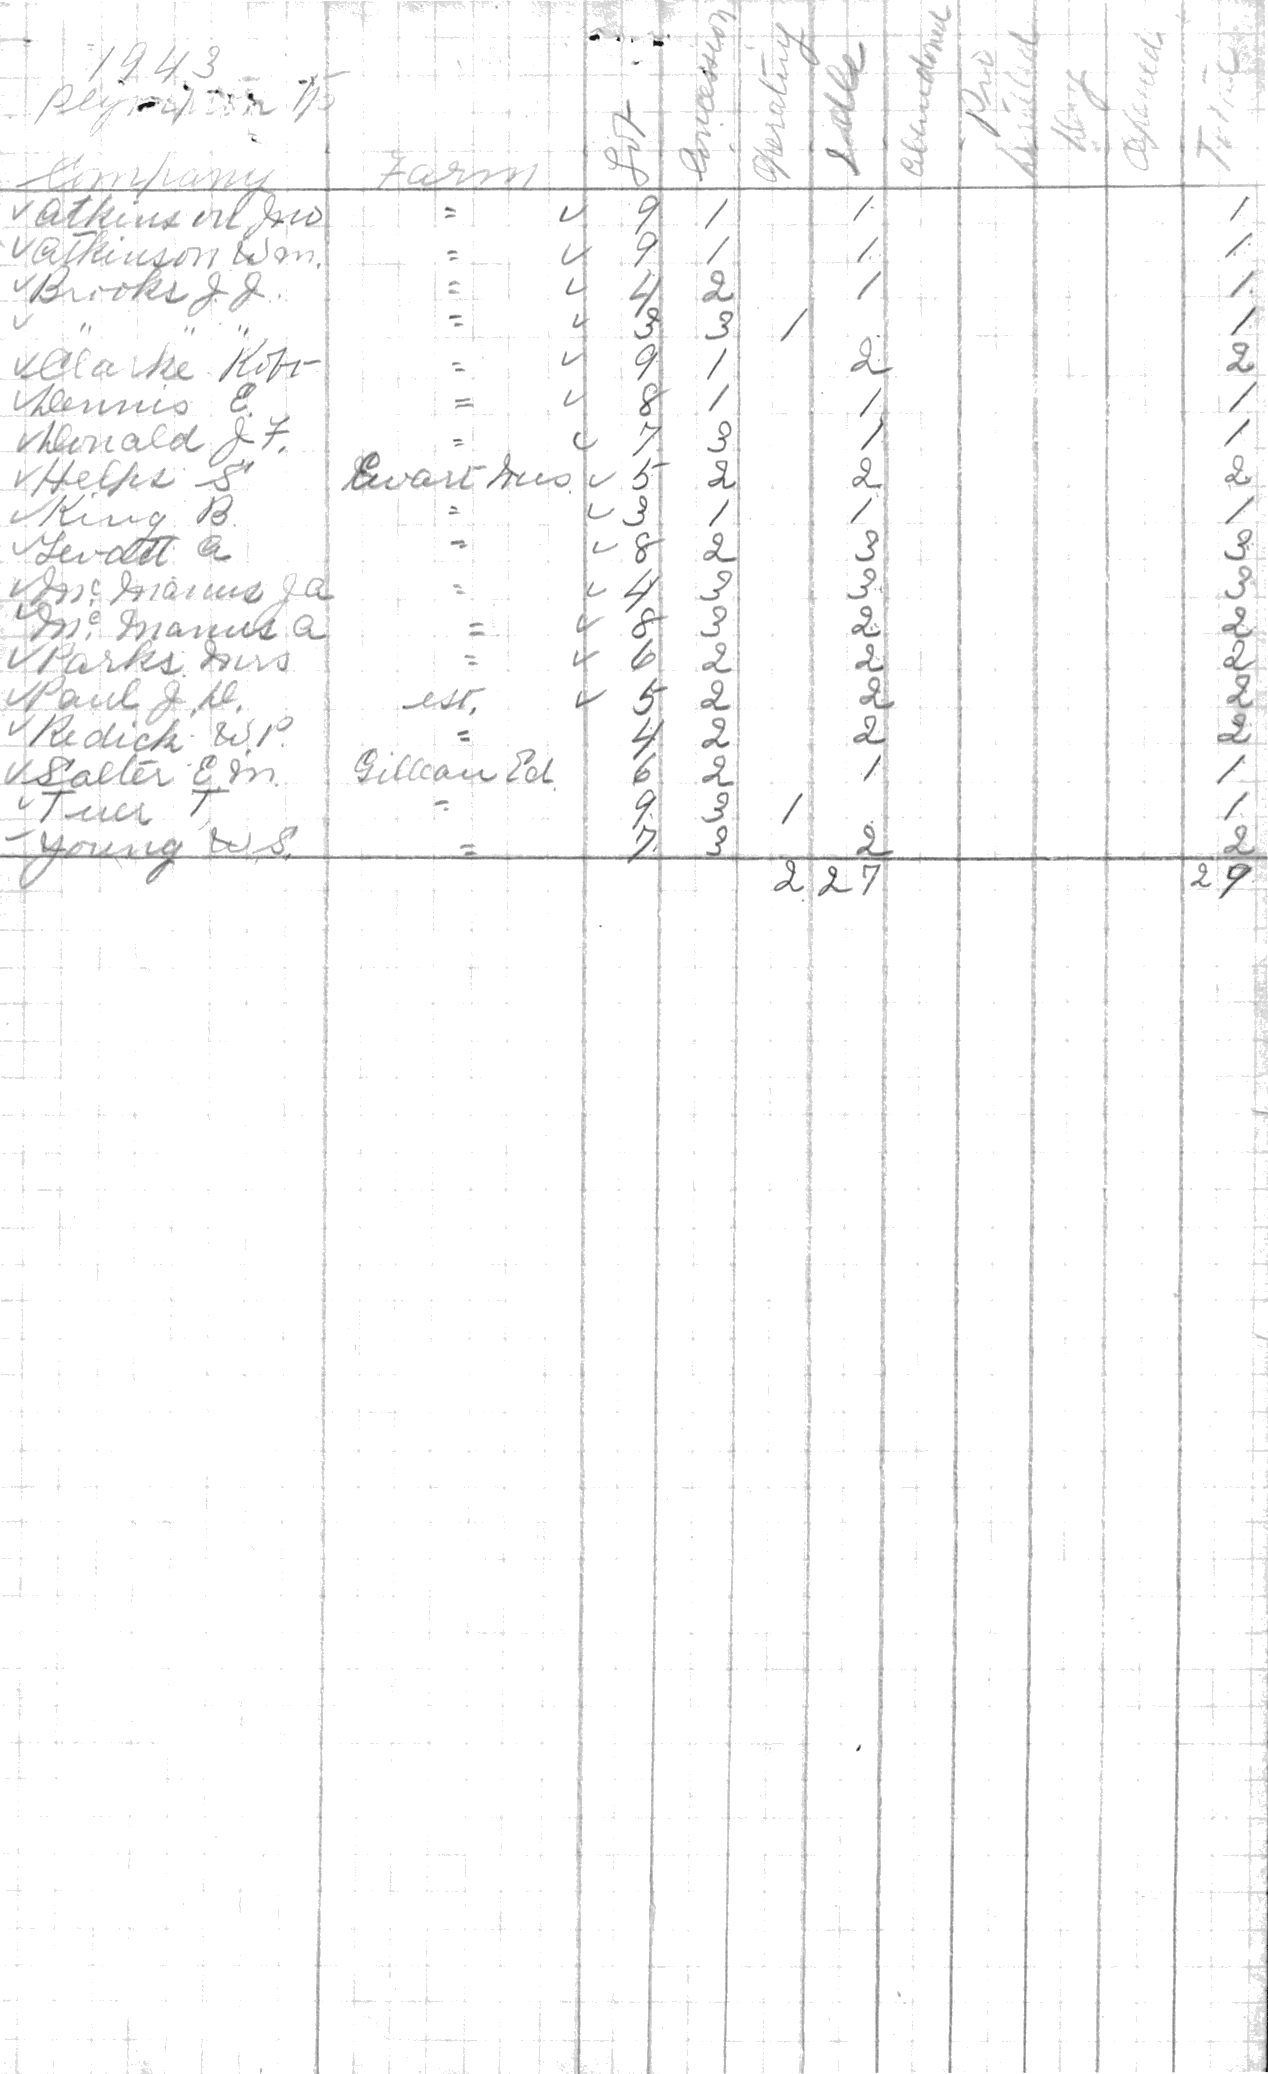 1943
Plympton Tp
Company Farm Lot Concession Operating Idle Abandoned Drilled Dry Opened Total
✓ Atkinson Jno = ✓ 9 1 1 1
✓ Atkinson Wm. = ✓ 9 1 1 1
✓ Brooks J. J. = ✓ 4 2 1 1
✓ " " " = ✓ 3 3 1 1
✓ Clarke Robt = ✓ 9 1 2 2
✓ Dennis E. = ✓ 8 1 1 1
✓ Donald J. F. = ✓ 7 3 1 1
✓ Helps S Ewart Mrs. ✓ 5 2 2 2
✓ King B. = ✓ 3 1 1 1
✓ A = ✓ 8 2 3 3
✓ Mc Manus J A = ✓ 4 3 3 3
✓ Mc Manus A = ✓ 8 3 2 2
✓ Parks Mrs = ✓ 6 2 2 2
✓ Paul J. D. est. ✓ 5 2 2 2
✓ Redick W. P. = 4 2 2 2
✓ Salter E. M. Ed. 6 2 1 1
✓ T = 9 3 1 1
- Young W S. = 7 3 2 2
2 27 29